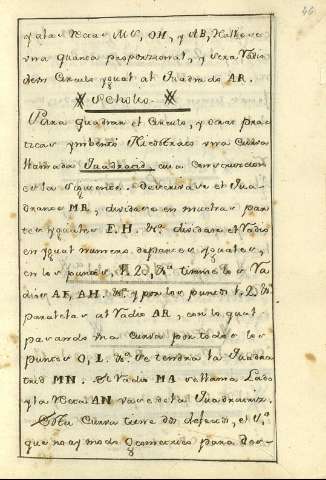 46
y alas rectas MN, OH, y AB, Hallese
una quarta proporzional, y sera Radio
del Circulo ygual al Quadrado AR.
Scholio
Para quadrar el Circulo, y otras prac
ticas ymbento una Curva
llamada Quadratriz, cuia Construccion
es la siguiente. Descrivase el Qua
drante MR, dividase en muchas par
tes yguales E. H. &c. dividase el Radio
en ygual numero de partes yguales,
en los puntos, 1. 2. &c. tirense los Ra
dios AE, AH. &c. y por los puntos 1. 2. &c.
paralelas al Radio AR, con lo qual
pasando una curva por todos los
puntos O, L. &c. se tendra la Quadra
triz MN. El Radio MA se llama Lado
y la recta AN vase de la Quadratriz.
Esta Curva tiene dos defectos, el 1.º
que no ay modo Geometrico para des-